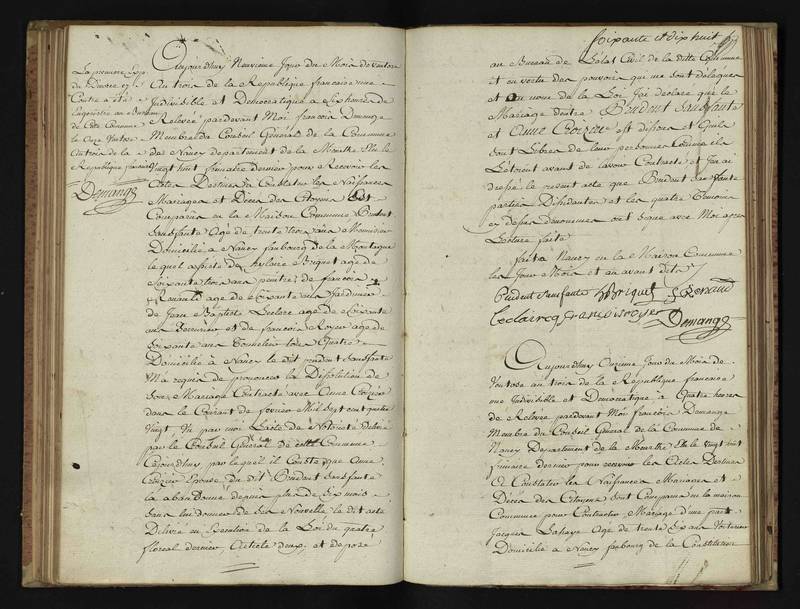 La première Exp.
du Divorce cy
Contre a été
au Bureau
de Cette Commune
Le Onze Ventose
an trois de la
Republique française
Demange
Aujourdhuy Neuvieme Jour du Mois de Ventose
an trois de la Republique francaise une
Indivisible et Democratique a Six heures de
Relevée pardevant Moi francois Demange
Membre du Conseil Général de la Commune
de Nancy departement de la Meurthe Elu le
Vingt huit frimaire dernier pour Recevoir les
Actes Destinés a Constater les Naissances
Mariages et Décès des Citoyens Est
Comparu en la Maison Commune Prudent
Sansfaute Agé de trente trois ans Menuisier
Domicilié a Nancy faubourg de la Montagne
lequel assisté de hylaire Briquet agé de
Soixante trois ans peintre, de francois
Renauld agé de Soixante ans Jardinier
de Jean Baptiste Leclerc agé de Soixante
ans et de francois Royer agé de
Soixante ans Tonnelier tous Quatre
Domiciliés à Nancy le dit prudent Sansfaute
M'a requis de prononcer la Dissolution de
Son Mariage Contracté avec Anne Croizier
dans le Courant de fevrier Mil Sept cent quatre
Vingt Vu par moi L'acte de Notorieté délivré
par le Conseil Général de cette Commune
Cejourdhuy par lequel il Conste que Anne
Croizier Epouse du dit Prudent Sansfaute
la abandonné depuis plus de Six mois
Sans lui donner de Ses Nouvelles le dit acte
Délivré en Execution de la Loi du quatre
floreal dernier Article deux, et deposé
Soixante et dix huit
au Bureau de L'état Civil de la ditte Commune
et en vertu des pouvoirs qui me Sont délégués
et au nom de la Loi J'ai declaré que le
Mariage d'entre Prudent Sansfaute
et Anne Croizier est dissous et Qu'ils
Sont Libres de leur personnes Comme ils
L'étoient avant de l'avoir Contracté et J'en ai
dressé le present acte que Prudent Sansfaute
partie Présidante et les quatre Temoins
cy dessus denommés ont Signé avec Moi apres
Lecture faite
fait a Nancy en la Maison Commune
les Jour Mois et an avant dits
Prudent Sansfaute h Briquet f Renaud
Leclaircq françois royer
Demange
Aujourdhuy Onzieme Jour du Mois de
Ventose an trois de la Republique francaise
une Indivisible et Démocratique a Quatre heures
de Relevée pardevant Moi francois Demange
Membre du Conseil Général de la Commune de
Nancy Departement de la Meurthe Elu le Vingt huit
frimaire dernier pour recevoir les Actes Destinés
a Constater les Naissances Mariages et
Décès des Citoyens Sont Comparus en la maison
Commune pour Contracter Mariage d'une part
Jacques Lahaye Agé de trente Six ans Voiturier
Domicilié a Nancy faubourg de la Constitution